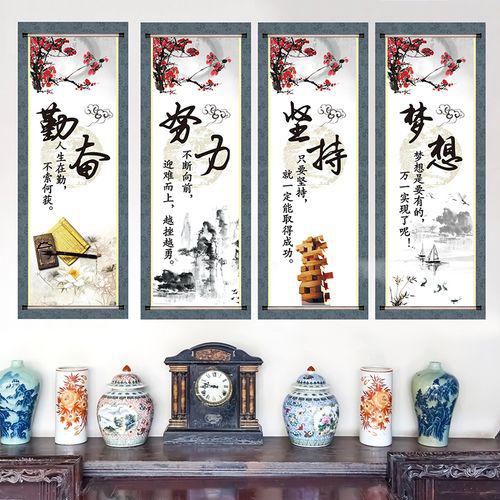 勤奋
人生在勤，
不索何获。
努力
不断向前，
迎难而上，越挫越勇。
坚持
只要坚持，
就一定能取得成功。
梦想
梦想是要有的，
万一实现了呢！